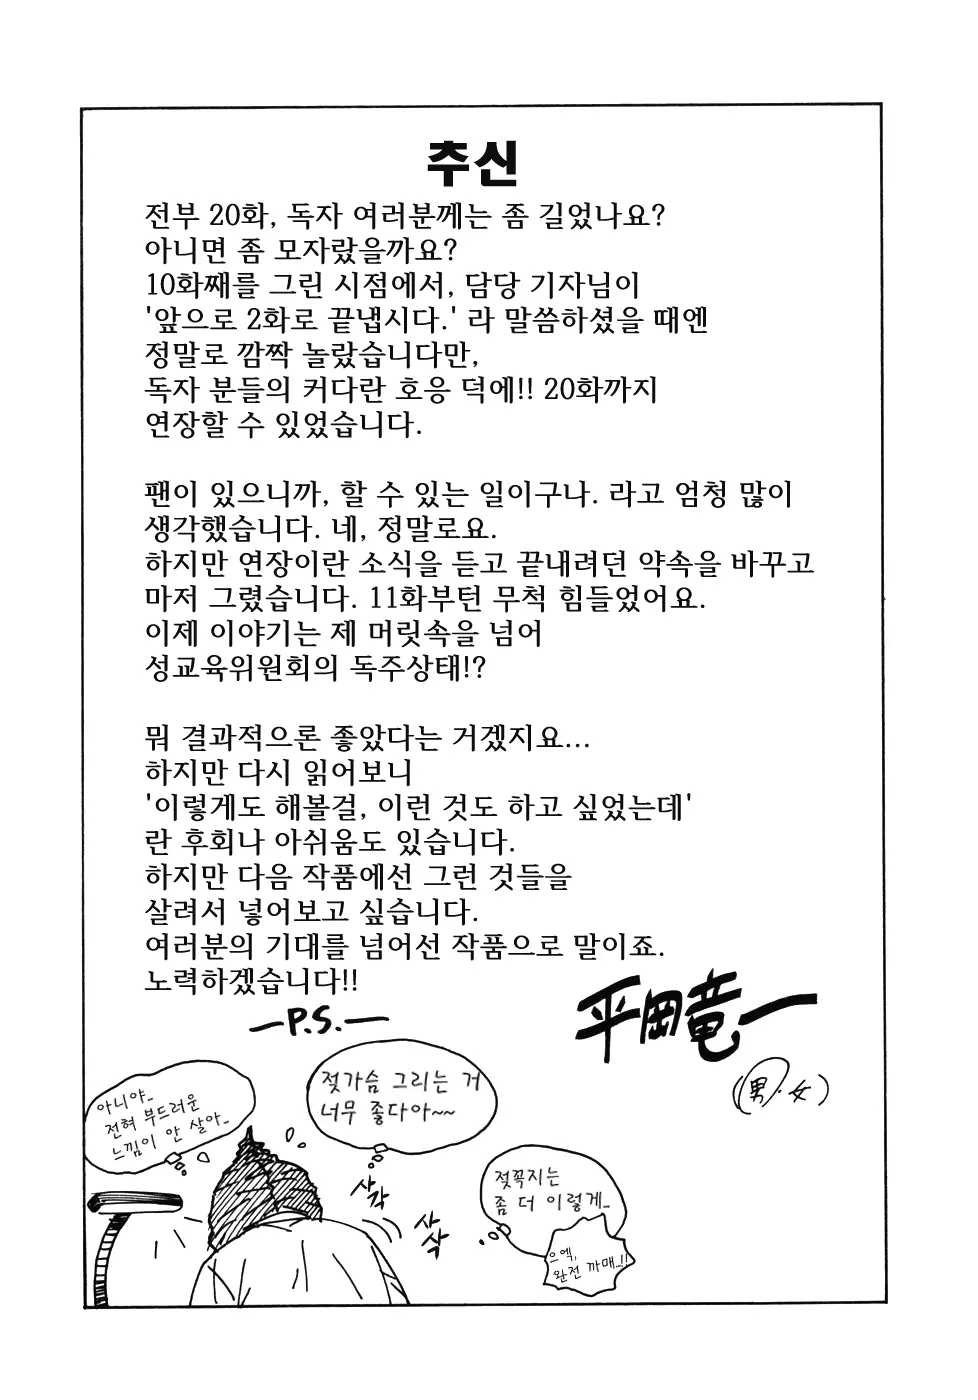 추신
전부 20화, 독자 여러분께는 좀 길었나요?
아니면 좀 모자랐을까요?
10화째를 그린 시점에서, 담당 기자님이
'앞으로 2화로 끝냅시다.' 라 말씀하셨을 때엔
정말로 깜짝 놀랐습니다만,
독자 분들의 커다란 호응 덕에!! 20화까지
연장할 수 있었습니다.
팬이 있으니까, 할 수 있는 일이구나. 라고 엄청 많이
생각했습니다. 네, 정말로요.
하지만 연장이란 소식을 듣고 끝내려던 약속을 바꾸고
마저 그렸습니다. 11화부턴 무척 힘들었어요.
이제 이야기는 제 머릿속을 넘어
성교육위원회의 독주상태!?
뭐 결과적으론 좋았다는 거겠지요...
하지만 다시 읽어보니
'이렇게도 해볼걸, 이런 것도 하고 싶었는데'
란 후회나 아쉬움도 있습니다.
하지만 다음 작품에선 그런 것들을
살려서 넣어보고 싶습니다.
여러분의 기대를 넘어선 작품으로 말이죠.
노력하겠습니다!!
平岡竜一
(男・女)
—P.S.—
아니야..
전혀 부드러운
느낌이 안 살아..
젖가슴 그리는 거
너무 좋다아~~
사각
사삭
젖꼭지는
좀 더 이렇게..
으엑,
완전 까매..!!